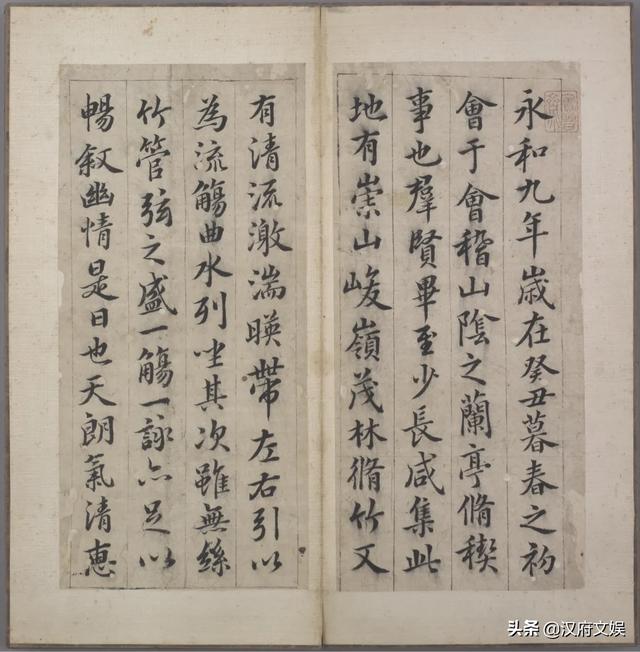 永和九年歲在癸丑暮春之初
會于會稽山陰之蘭亭脩稧
事也羣賢畢至少長咸集此
地有崇山峻嶺茂林脩竹又
有清流激湍暎帶左右引以
為流觴曲水列坐其次雖無絲
竹管弦之盛一觴一詠亦足以
暢敘幽情是日也天朗氣清惠
头条 @汉府文娱